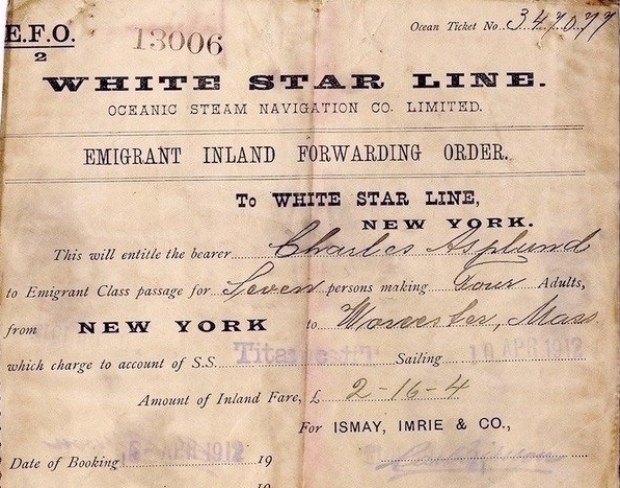 E.F.O. 13006 Ocean Ticket No 347077
2
WHITE STAR LINE.
OCEANIC STEAM NAVIGATION CO. LIMITED.
EMIGRANT INLAND FORWARDING ORDER.
To WHITE STAR LINE,
NEW YORK.
This will entitle the bearer Charles Asplund
to Emigrant Class passage for Seven persons making Four Adults,
from NEW YORK to Worcester, Mass
which charge to account of S.S. Titanic Sailing 10 APR 1912
Amount of Inland Fare, £ 2-16-4
For ISMAY, IMRIE & CO.,
Date of Booking APR 1912 19
19